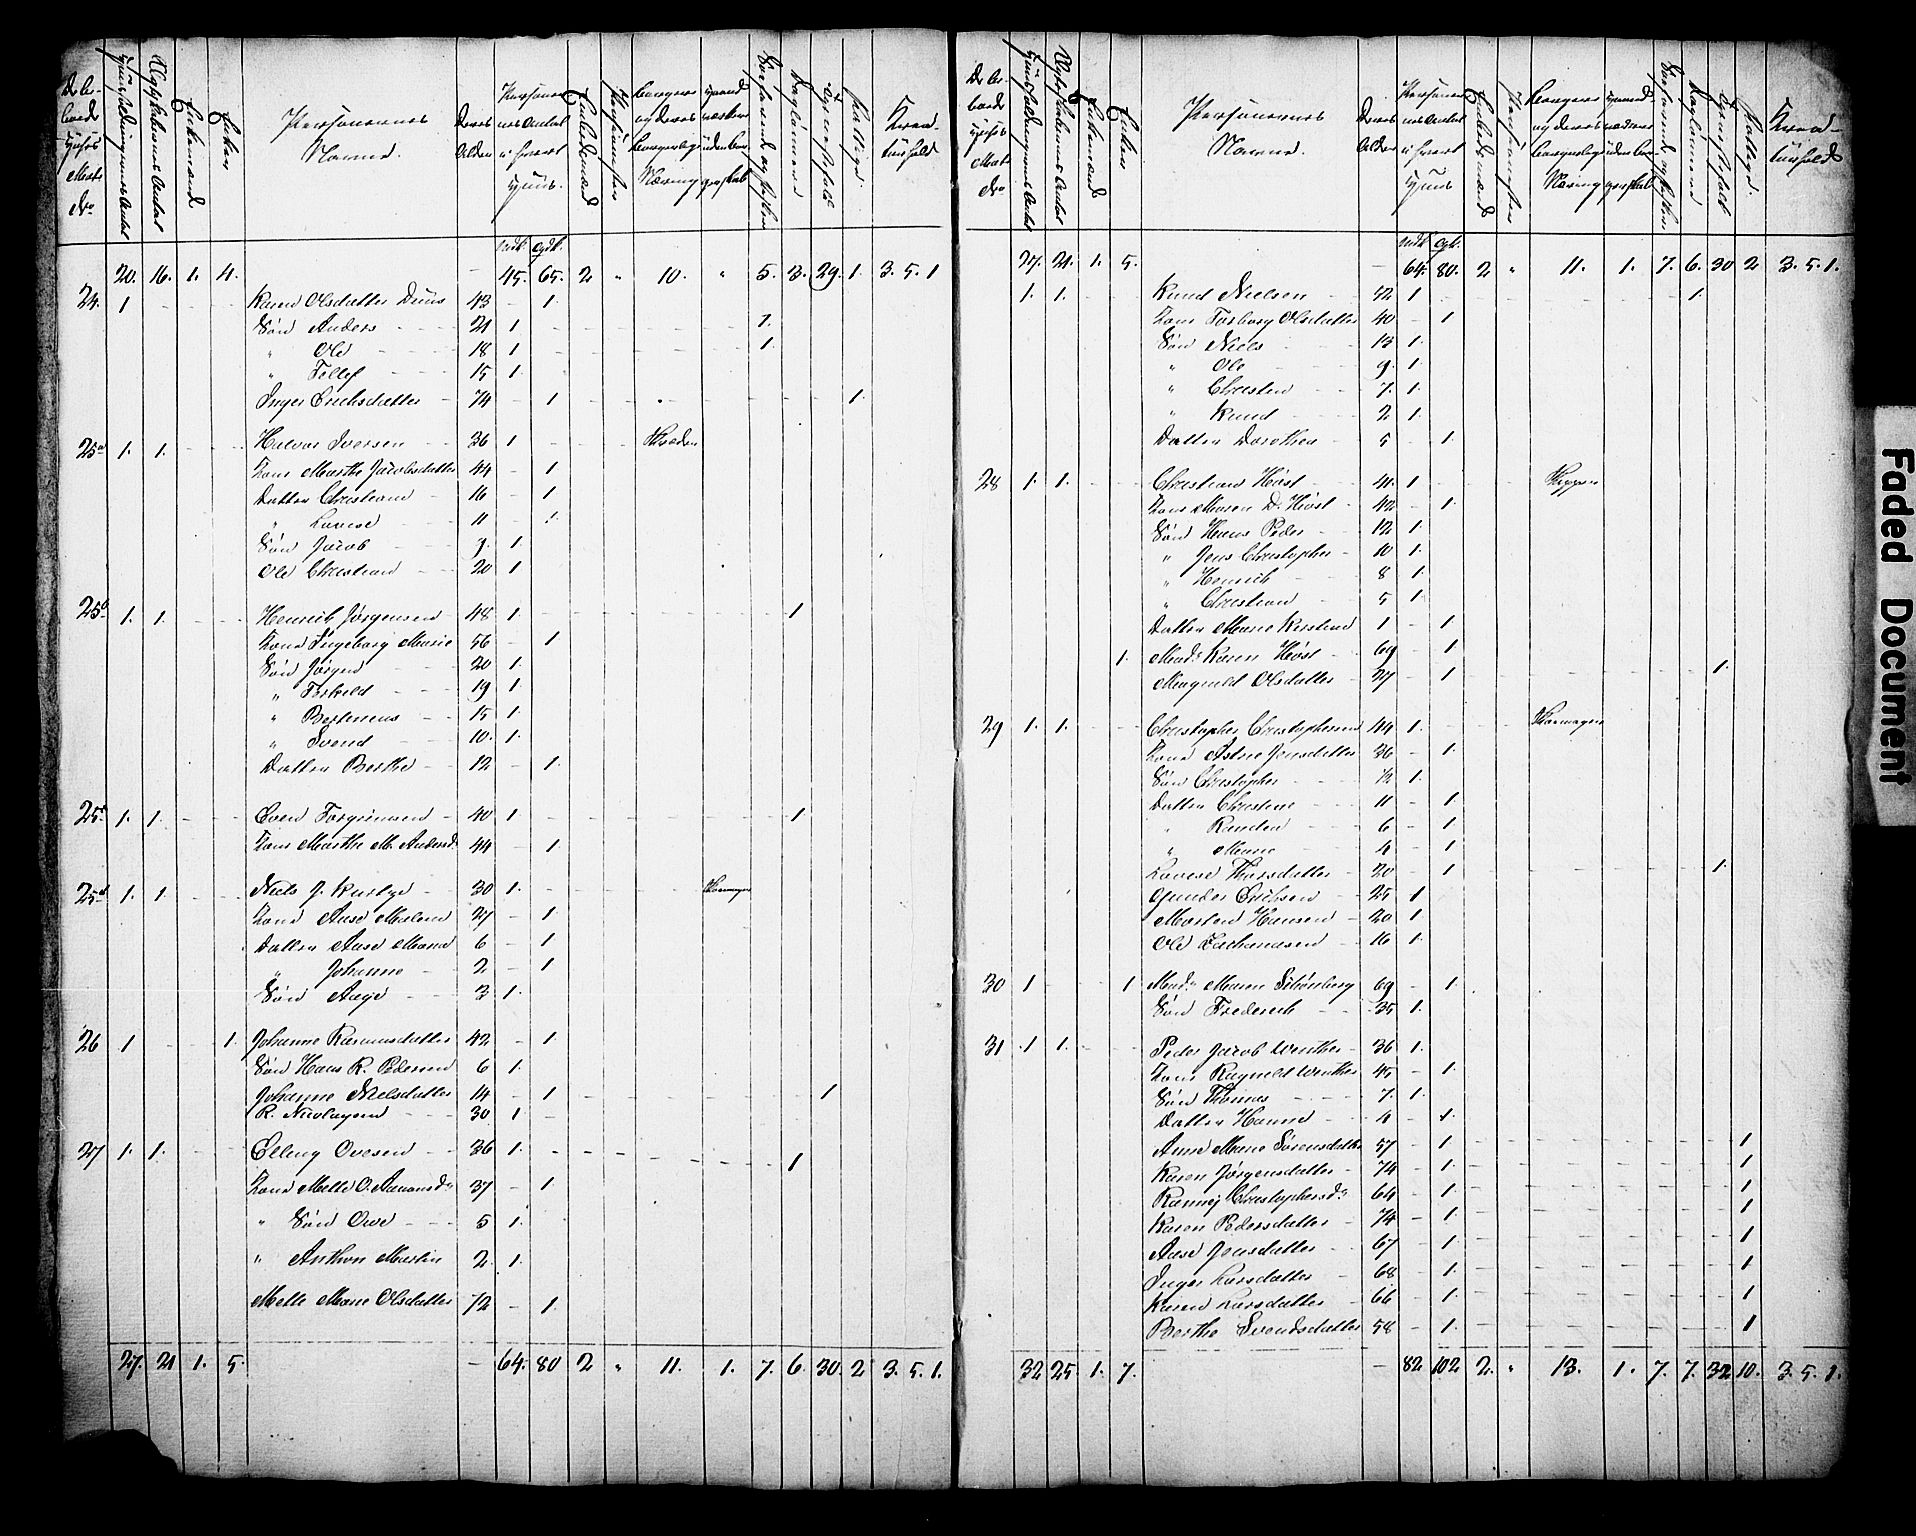 De be-
boede
Huses
Matr
No
Huusholdningernes Antal
Ægteskabernes Antal
Enkemænd
Enker
Personernes
Navne.
Deres
Alder
Personer-
nes Antal
i hvert
Huus.
Embedsmænd
Pensionister
Borgere
og deres
borgerlig
Næring
Søefarende og fiskere
Daglønnere
Tyendefolk
Fattige
Krea-
turhold
mdk. qdk.
20. 16. 1. 4. - 45. 65. 2 " 10. " 5. 3. 29. 1. 3. 5. 1
24. 1 - - - Karen Olsdatter Duus 43 - 1.
Søn Anders 21 1 - 1.
" Ole 18 1 - 1.
" Tellef 15 1.
Inger Erichsdatter - 74 - 1 - 1.
25a 1. 1. - - Halvor Iversen 36 1 - Skræder
Kone Marthe Jacobsdatter 44 - 1
Datter Christiane - 16 - 1
" Lovise 11 - 1.
Søn Jacob 9. 1.
Ole Christian 20 1
25b 1. 1. - - Henrich Jørgensen - 48 1. - 1
Kone Ingeborg Marie 56 - 1
Søn Jørgen 20 1.
" Torkild 19 1.
" Bertenius 15 1.
" Svend 10. 1.
Datter Berthe - 12 - 1.
25c 1. 1. - - Even Torgrimsen - 40 1 - 1
Kone Marthe M. Andersd. 44 - 1
25d 1. 1. - Niels J. Kurtze - 30 1.
Kone Aase Malene 27 - 1.
Datter Aase Maria 6 - 1
" Johanne - 2 - 1
Søn Aage 3 1.
26 1 - - 1. Johanne Rasmusdatter 42 - 1
Søn Hans R. Pedersen 6 1.
Johanne Nielsdatter 14 - 1 - 1
R. Nicolaysen 30 1 -
27 1. 1. - - Elling Ovesen - - 36 1. - 1
Kone Mette O. Aanonsd. 37 - 1
" Søn Ove - - 5 1.
" Anthon Martin 2. 1.
Mette Marie Olsdatter 72 - 1.
27. 21 1. 5. - 64. 80 2 " 11. 1. 7. 6. 30. 2 3. 5. 1.
De be-
boede
Huses
Matr
No
Huusholdningernes Antal
Ægteskabernes Antal
Enkemænd
Enker
Personernes
Navne.
Deres
Alder
Personer-
nes Antal
i hvert
Huus
Embedsmænd
Pensionister
Borgere
og deres
borgerlig
Næring
Søefarende og fiskere
Daglønnere
Tyendefolk
Fattige
Krea-
turhold
mdk. qdk.
27. 21. 1. 5. - 64. 80. 2 " 11. 1. 7. 6. 30 2 3. 5. 1.
1. 1. - - Knud Nielsen 42 1 - 1.
Kone Torborg Olsdatter 40 - 1
Søn Niels 13 1.
" Ole 9. 1.
" Christen 7. 1.
" Knud 2 1.
Datter Dorothea 5 - 1.
28 1. 1. - - Christian Høst 41. 1 - Skipper
Kone Maren D. Høst - 42 - 1.
Søn Hans Peder 12 1.
" Jens Christopher - 10 1.
" Henrich 8 1.
" Christian 5 1.
Datter Marie Kirstine 1 - 1
1. Mad. Karen Høst - 69 - 1
Magnild Olsdatter - 27 - 1 - 1.
29 1. 1. - - Christopher Christophersen 44 1.
Kone Astrie Jensdatter 36 - 1.
Søn Christopher 12 1.
Datter Christine 11 - 1.
" Randea 6 - 1
" Marie 4 - 1
Lovise Thorsdatter 20 - 1 - 1.
Gunder Erichsen - 25 1
Morten Hansen - 20 1
Ole Zachariasen - 16 1.
30 1 - - 1 Mad. Maren Schønberg 69 - 1.
Søn Frederich - - 35 1.
31 1 1. - - Peder Jacob Winther - 36 1.
Kone Ragnild Winther 45 - 1.
Søn Thomas 7. 1.
Datter Hanne 4 - 1.
Anne Marie Sørensdatter 57 - 1 - 1
Karen Jørgensdatter - 74 - 1. - 1
Rannei Christophersd. 64 - 1. - 1
Karen Pedersdatter - 74 - 1. - 1
Aase Jensdatter 67 - 1. - 1
Inger Larsdatter 68 - 1. - 1
Karen Larsdatter - 66 - 1. - 1
Berthe Svendsdatter 58 - 1. - 1
32 25 1. 7. - 82 102 2. " 13. 1. 7. 7. 32 10. 3. 5. 1.
Faded Document